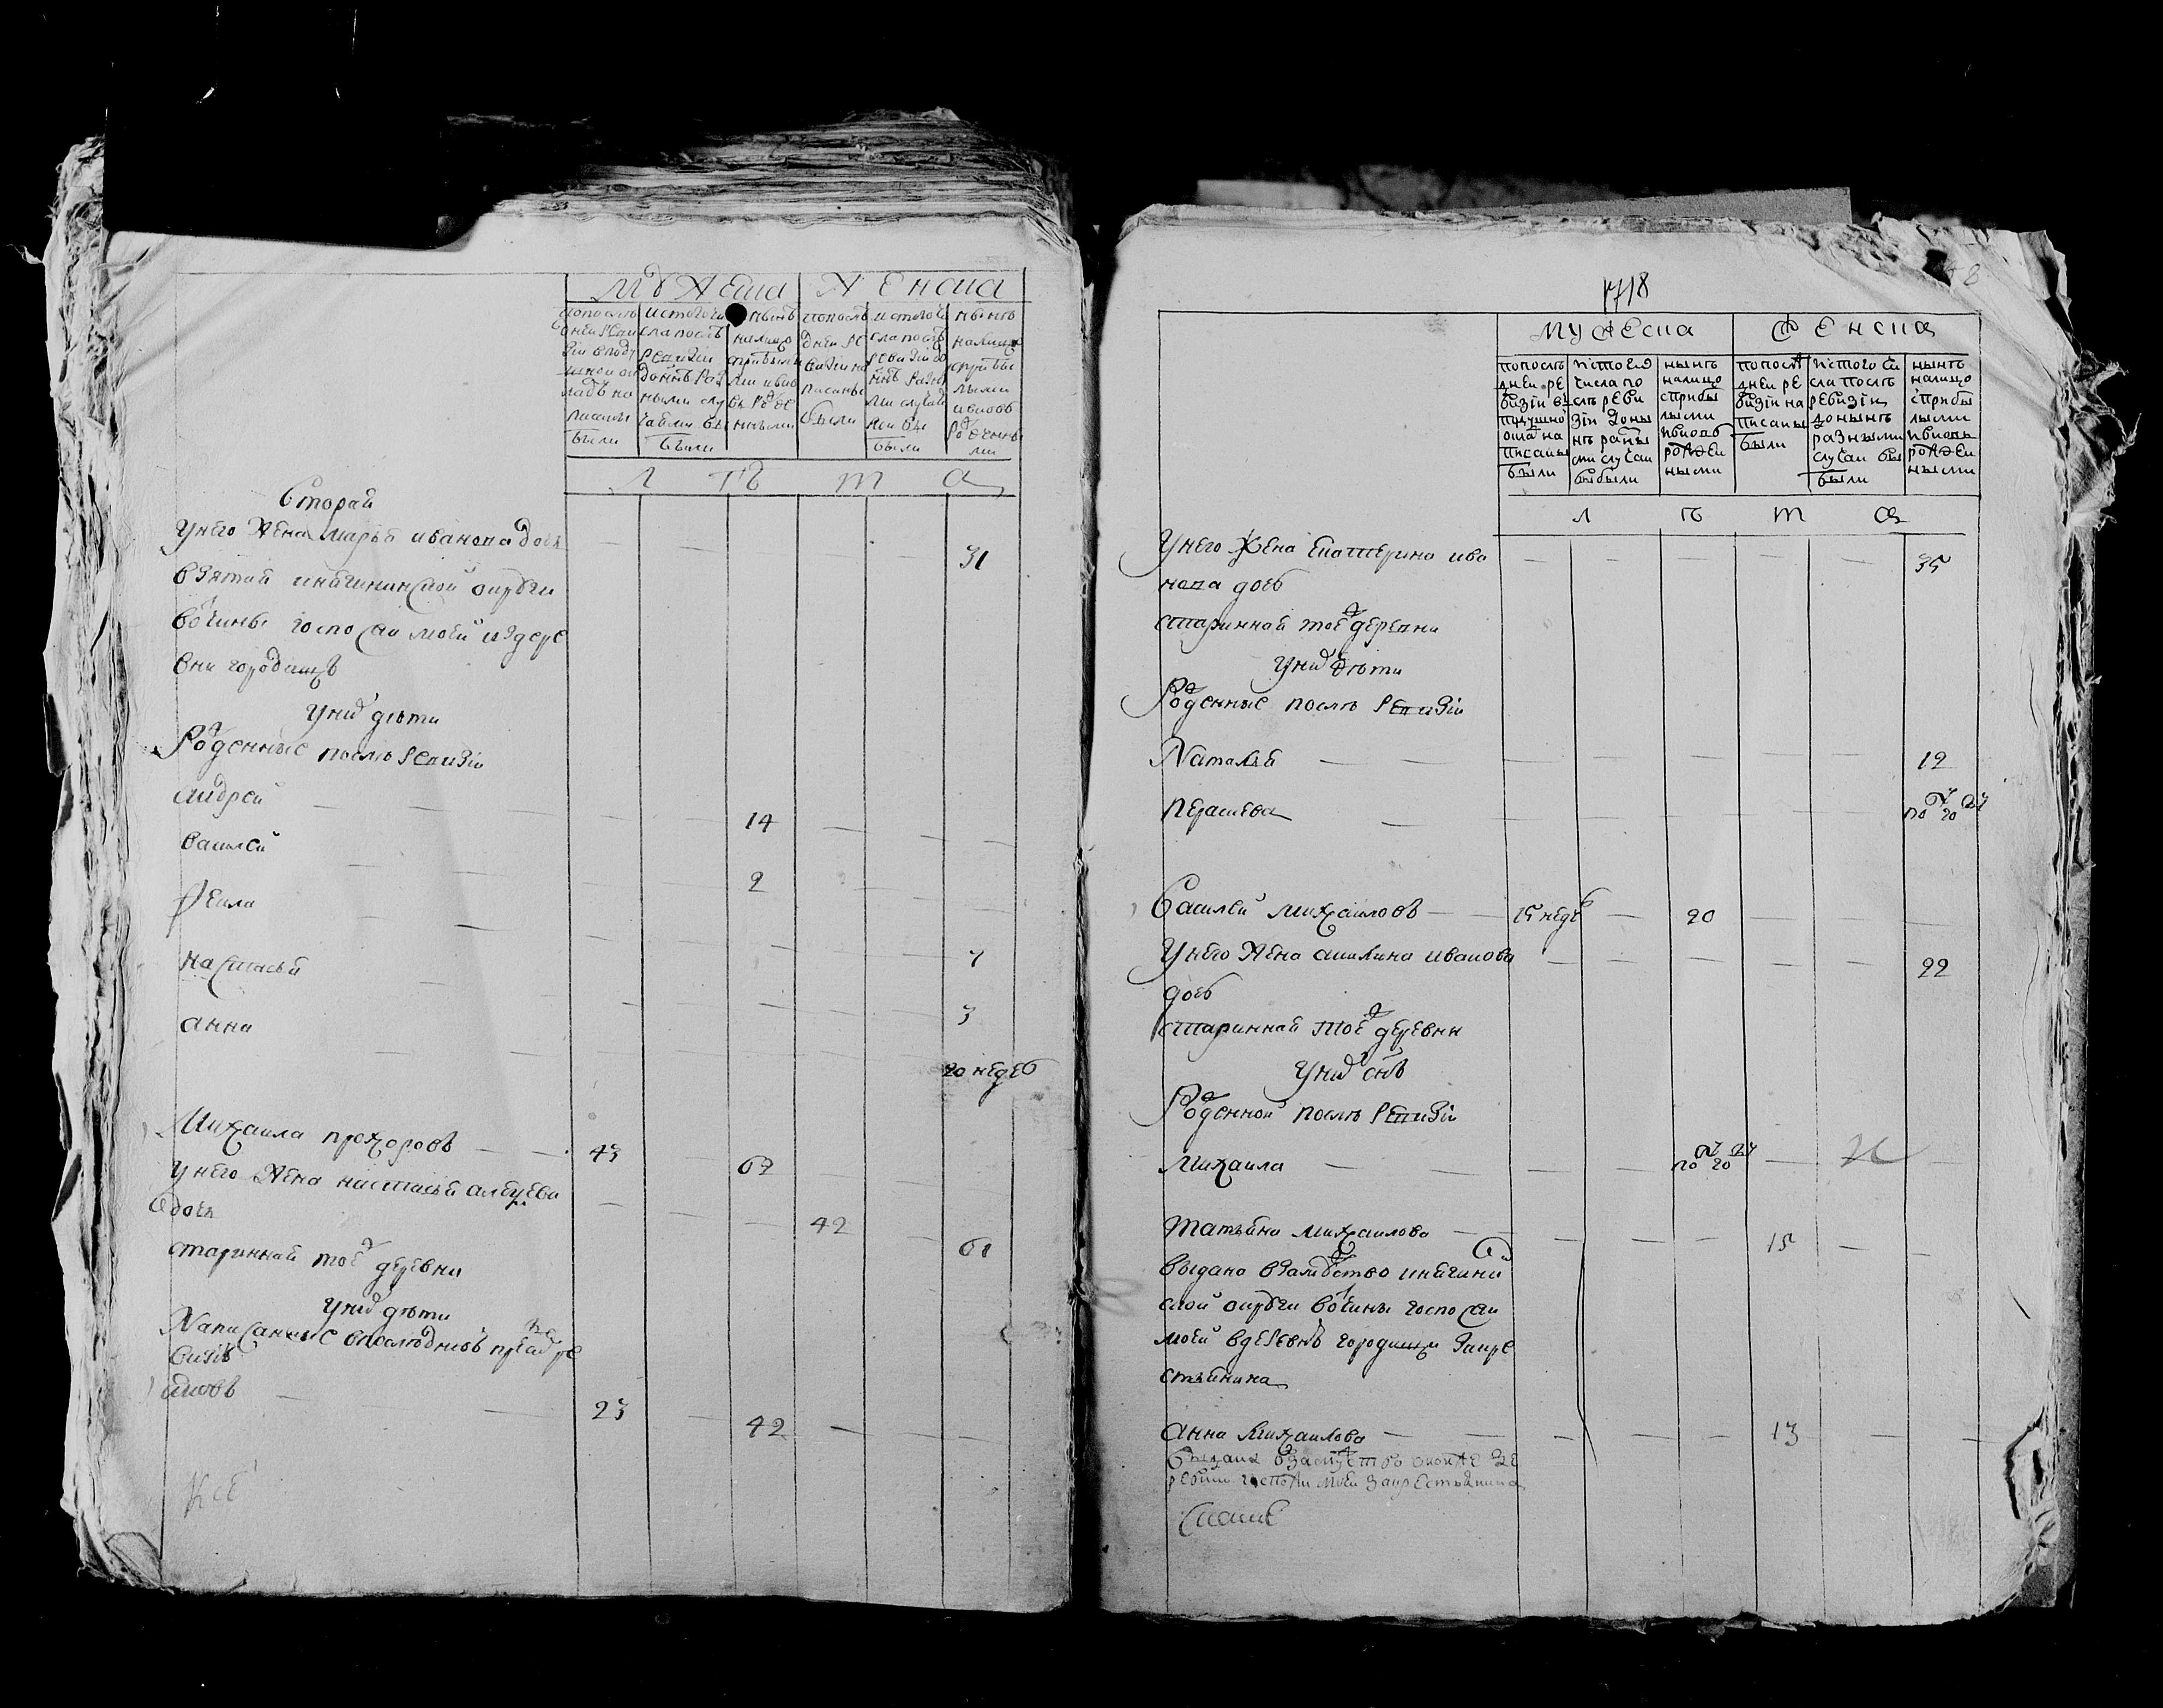 мужеска женска
попослѣ
дней реви
зіи вподу
шной ок
ладъ на
писаны
были
истого чи
сла послѣ
ревизіи
донынѣ раз
ными слу
чаями вы
были
нынѣ
налицо
сприбылы
ми ивно
вь рожде
нными
попослѣ
дней ре
визіи на
писаны
были
истого чи
сла послѣ
ревизіи до
нынѣ разны
ми случая
ми вы
были
нынѣ
налицо
сприбы
лыми
ивновь
рожденны
ми
л ѣ т а
второй
унего жена марья иванова дочь 31
взятая
вотчины госпожи моей издере
вни городищъ
уних дѣти
рожденные послѣ ревизіи
андрей 14
василей 2
фекла 7
настасья 3
анна 20 недель
михаила прохоровъ 43 67
унего жена настасья алексеева
дочь 42 61
старинная тоеж деревни
уних дѣти
написанные впослѣднюю пред сею ре
визію
яковъ 23 42
718
мужеска женска
попослѣ
дней ре
визіи въ
подушной
оклад на
писаны
были
исто его
числа по
слѣ реви
зіи доны
нѣ разны
ми случаи
выбыли
нынѣ
налицо
сприбы
лыми
ивновь
рожден
ными
попослѣ
дней ре
визіи на
писаны
были
истого чи
сла послѣ
ревизіи
донынѣ
разными
случаи вы
были
нынѣ
налицо
сприбы
лыми
ивновь
рожден
ными
л ѣ т а
унего жена екатерина ива 35
нова дочь
старинная тоеж деревни
уних дѣти
рожденные послѣ ревизіи
наталья 12
перасковья полугоду
василей михаиловъ 15 недель 20
унего жена акилина иванова 22
дочь
старинная тоеж деревни
уних сынъ
рожденной послѣ ревизіи
михаила полугоду
татьяна михаилова 15
выдана взамужство
ской округи вотчины госпожи
моей вдеревнѣ городищи закре
стьянина
анна михаилова 13
выдана взамужство втойже де
ревни госпожи моей закрестьянина